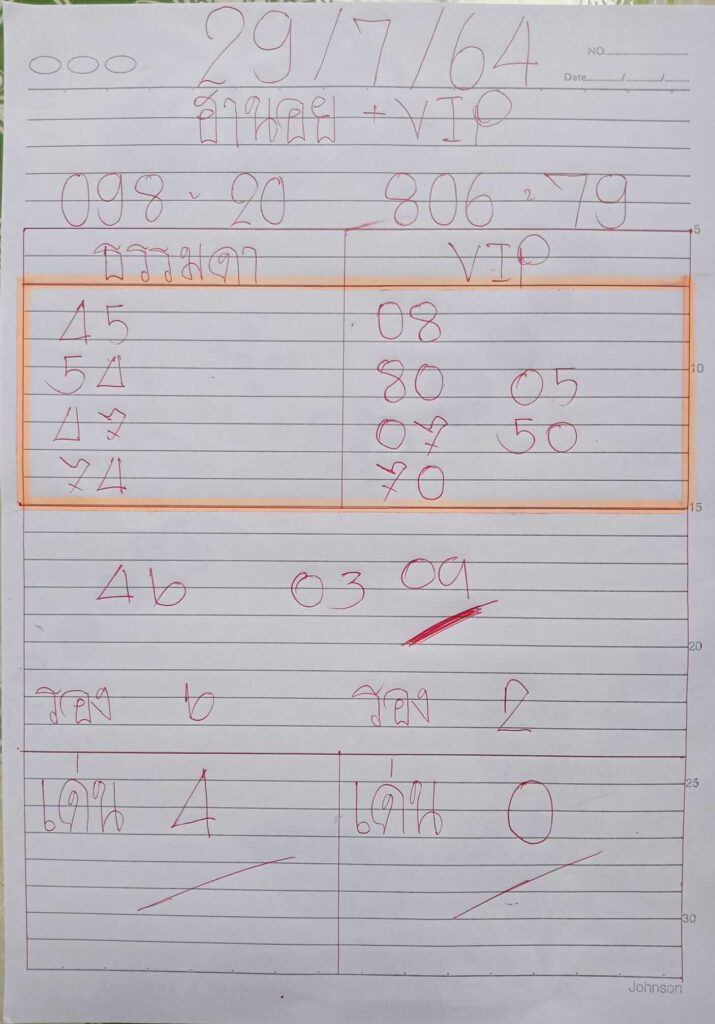 29/7/64
NO.
Date / /
ฮานอย + VIP
098 - 20 806 - 79
5
ธรรมดา VIP
45 08
54 80 05
10
47 07 50
74 70
15
46 03 09
20
รอง 6 รอง 2
25
เด่น 4 เด่น 0
30
Johnson